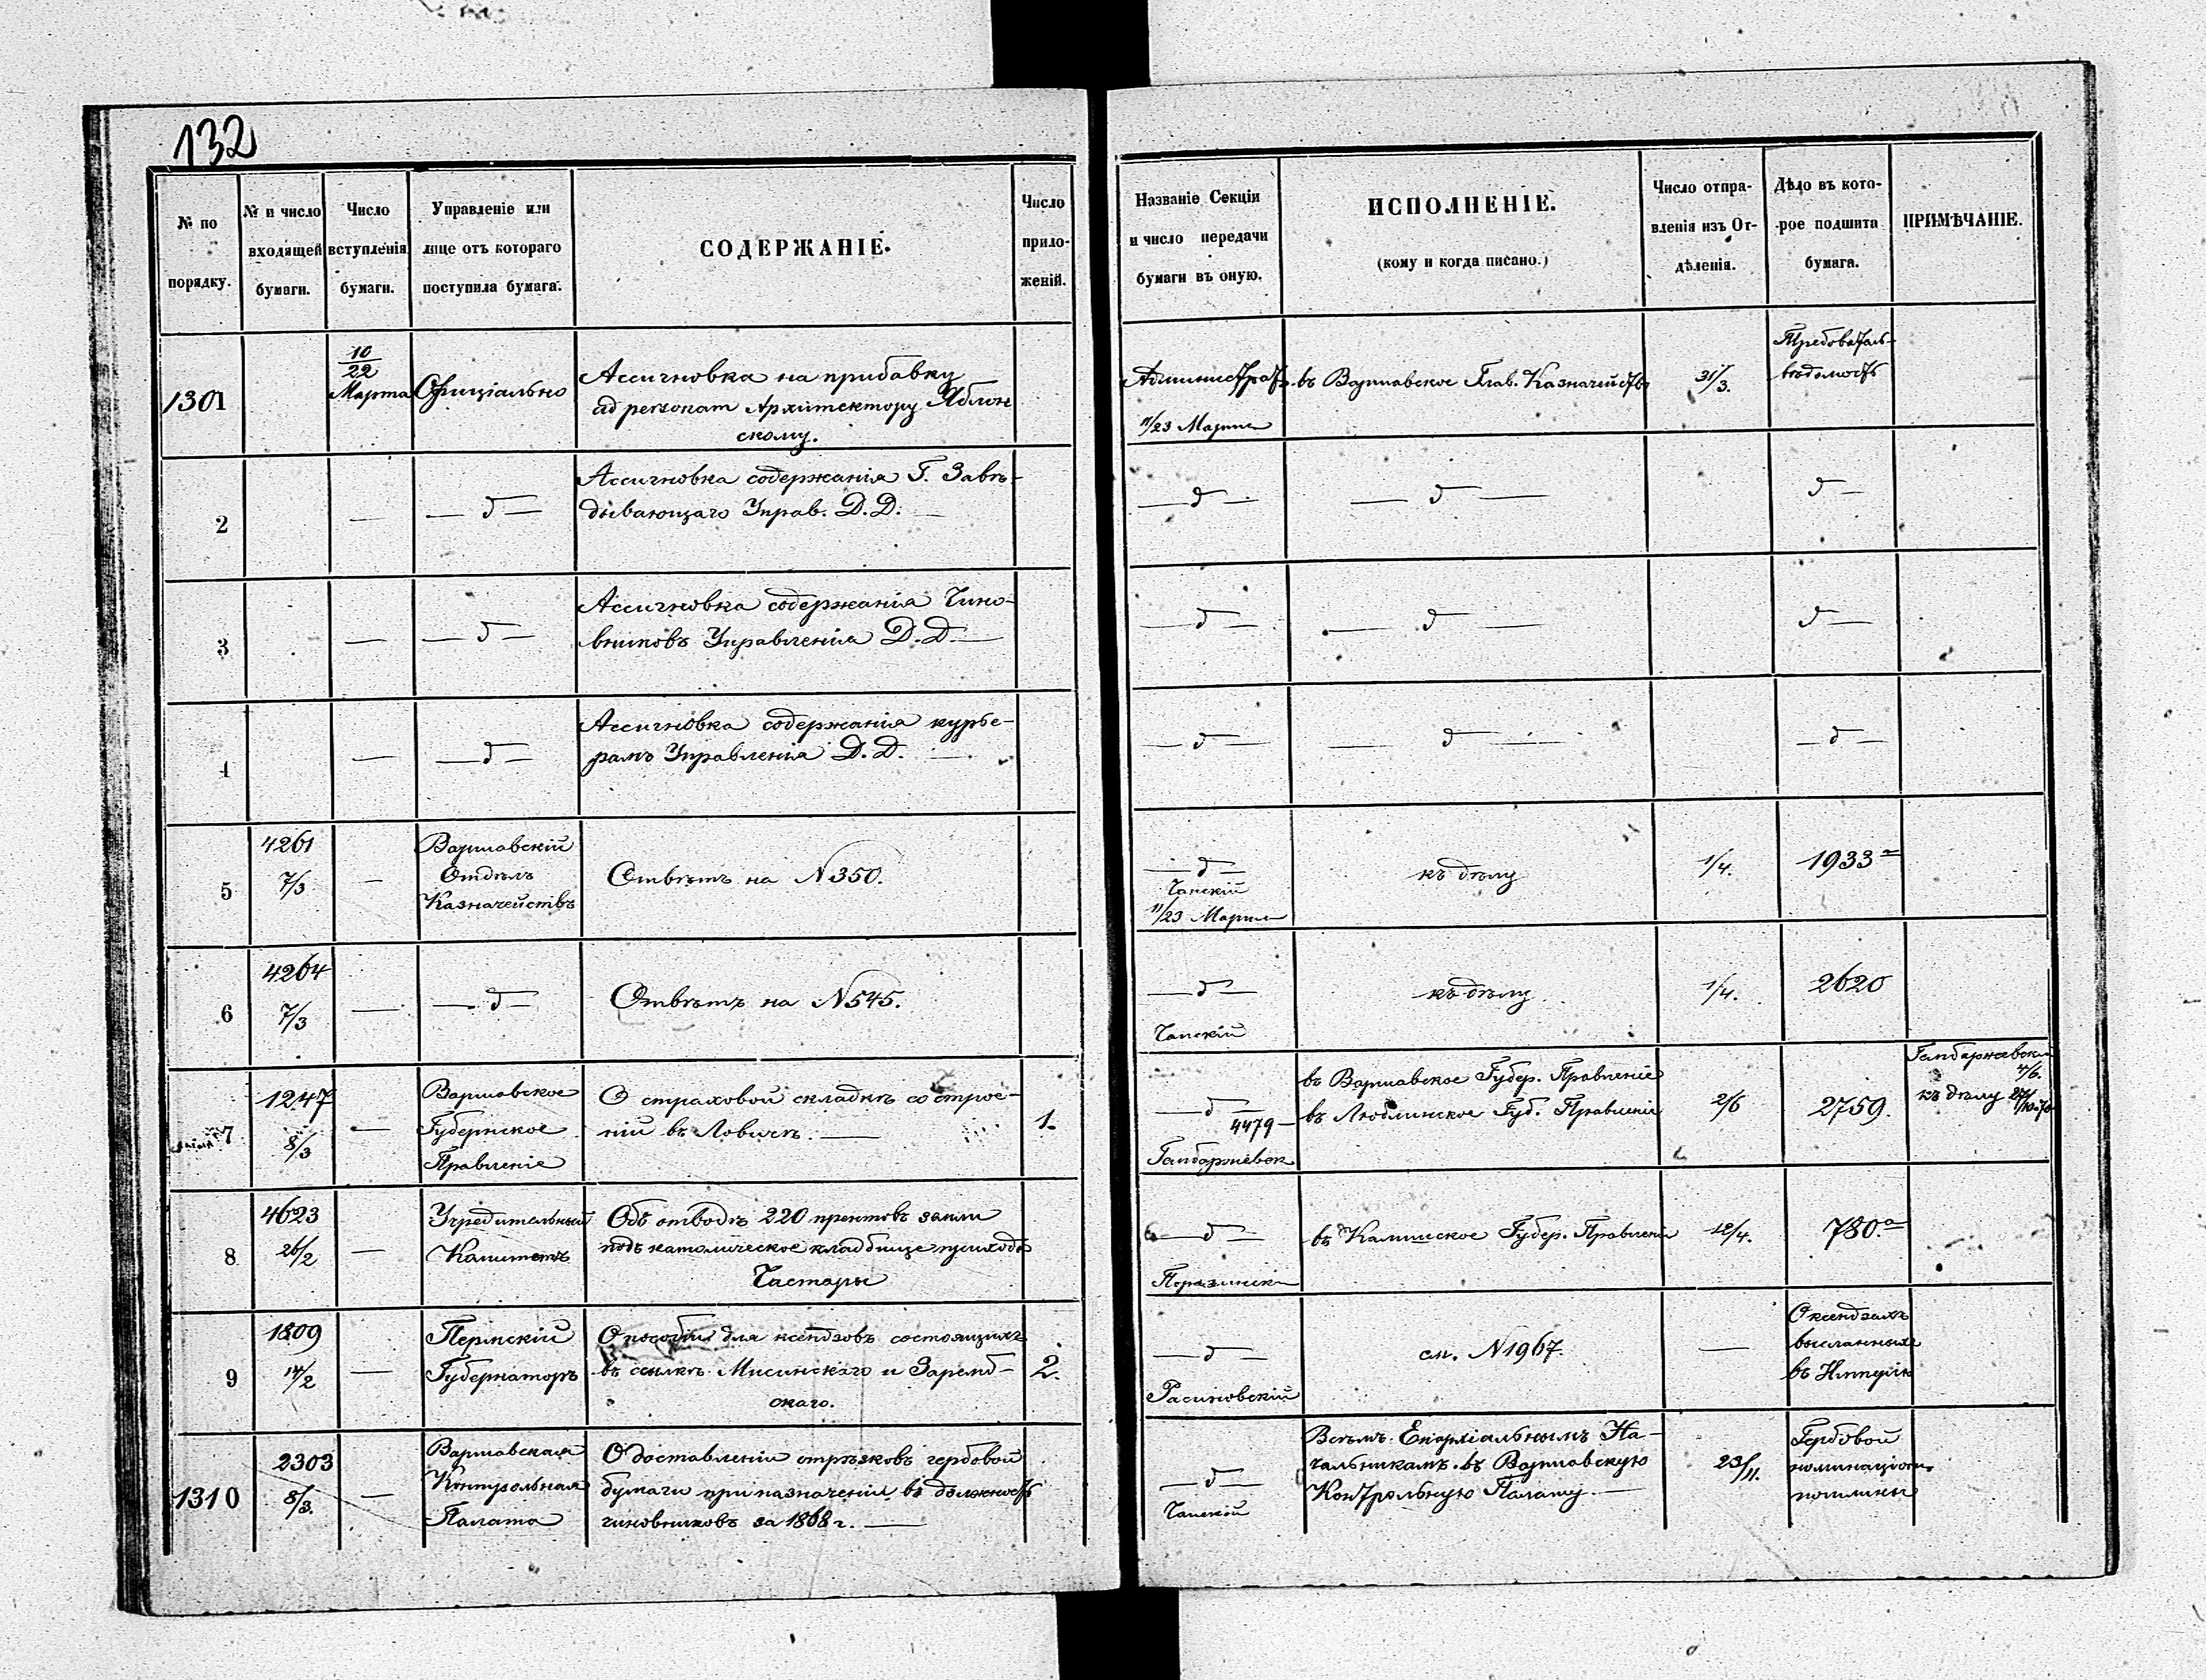 132
№ по порядку.
№ и число входящей бумаги.
Число вступленія бумаги.
Управленіе или лице отъ котораго поступила бумага.
СОДЕРЖАНІЕ.
Число приложеній.
Названіе Секціи и число передачи бумаги въ оную.
ИСПОЛНЕНІЕ.
(кому и когда писано.)
Число отправленія изъ Отдѣленія.
Дѣло въ которое подшита бумага.
ПРИМѢЧАНІЕ.
1301
10/22 Марта
Офиціально
Ассигновка на прибавку
ad personam Архитектору Яблон
скому.
Администрат.
11/23 Марта
въ Варшавское Глав. Казначейство
31/3.
Требователь-
вѣдомость
2
—
— д —
Ассигновка содержанія Г. Завѣ-
дывающаго Управ. Д. Д. —
— д —
— д —
д —
3
—
— д —
Ассигновка содержанія Чино-
вниковъ Управленія Д. Д. —
— д —
— д —
д —
4
—
— д —
Ассигновка содержанія курье-
рамъ Управленія Д. Д. —
— д —
— д —
— д —
5
4261
7/3
—
Варшавскій
Отдѣлъ
Казначействъ
Отвѣтъ на N350.
— д —
Чапскій
11/23 Марта
къ дѣлу
1/4.
1933 а
6
4264
7/3
—
— д —
Отвѣтъ на N545.
— д —
Чапскій
къ дѣлу
1/4.
2620
7
1247
8/3
—
Варшавское
Губернское
Правленіе
О страховой складкѣ со строе-
ній въ Ловичѣ. —
1.
— д —
4479 —
въ Варшавское Губер. Правленіе
въ Люблинское Губ. Правленіе
2/6
2759.
4/6.
къ дѣлу
8
4623
26/2
—
Учредительный
Комитетъ
Объ отводѣ 220 прентовъ земли
подъ католическое кладбище приходѣ
Частары
— д —
въ Калишское Губер. Правленіе
12/4.
780. а
9
1809
14/2
—
Пермскій
Губернаторъ
О пособіи для ксендзовъ состоящихъ
въ ссылкѣ Мисинскаго и Заремб-
скаго.
2.
— д —
Расиновскій
см. N1967.
—
О ксендзахъ
высланныхъ
въ Имперію
1310
2303
8/3.
—
Варшавская
Контрольная
Палата
О доставленіи отрѣзковъ гербовой
бумаги при назначеніи въ должность
чиновниковъ за 1868 г. —
— д —
Чапскій
Всѣмъ Епархіальнымъ На-
чальникамъ. въ Варшавскую
Контрольную Палату. —
23/11.
Гербовой
номинаціон.
пошлины